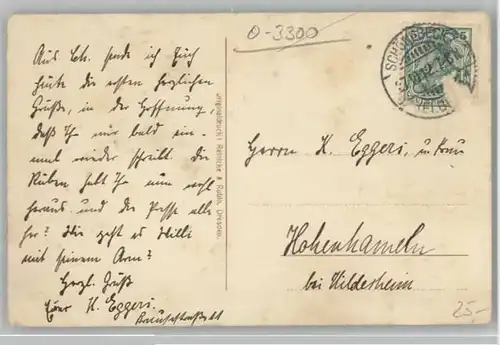 0-3300
Aus Sch. sende ich Euch
heute die ersten herzlichen
Grüße, in der Hoffnung,
daß Ihr nur bald ein-
mal wieder schreibt. Die
Rüben habt Ihr nun wohl
heraus und die Presse alle
her? Wie geht es Willi
mit seinem Arm?
Herzl. Gruß
Euer K. Eggers.
Originaldruck: Reinicke & Rubin, Dresden.
SCHÖNEBECK
Herrn K. Eggers, u. Frau
Hohenhameln
bei Hildesheim
25,-